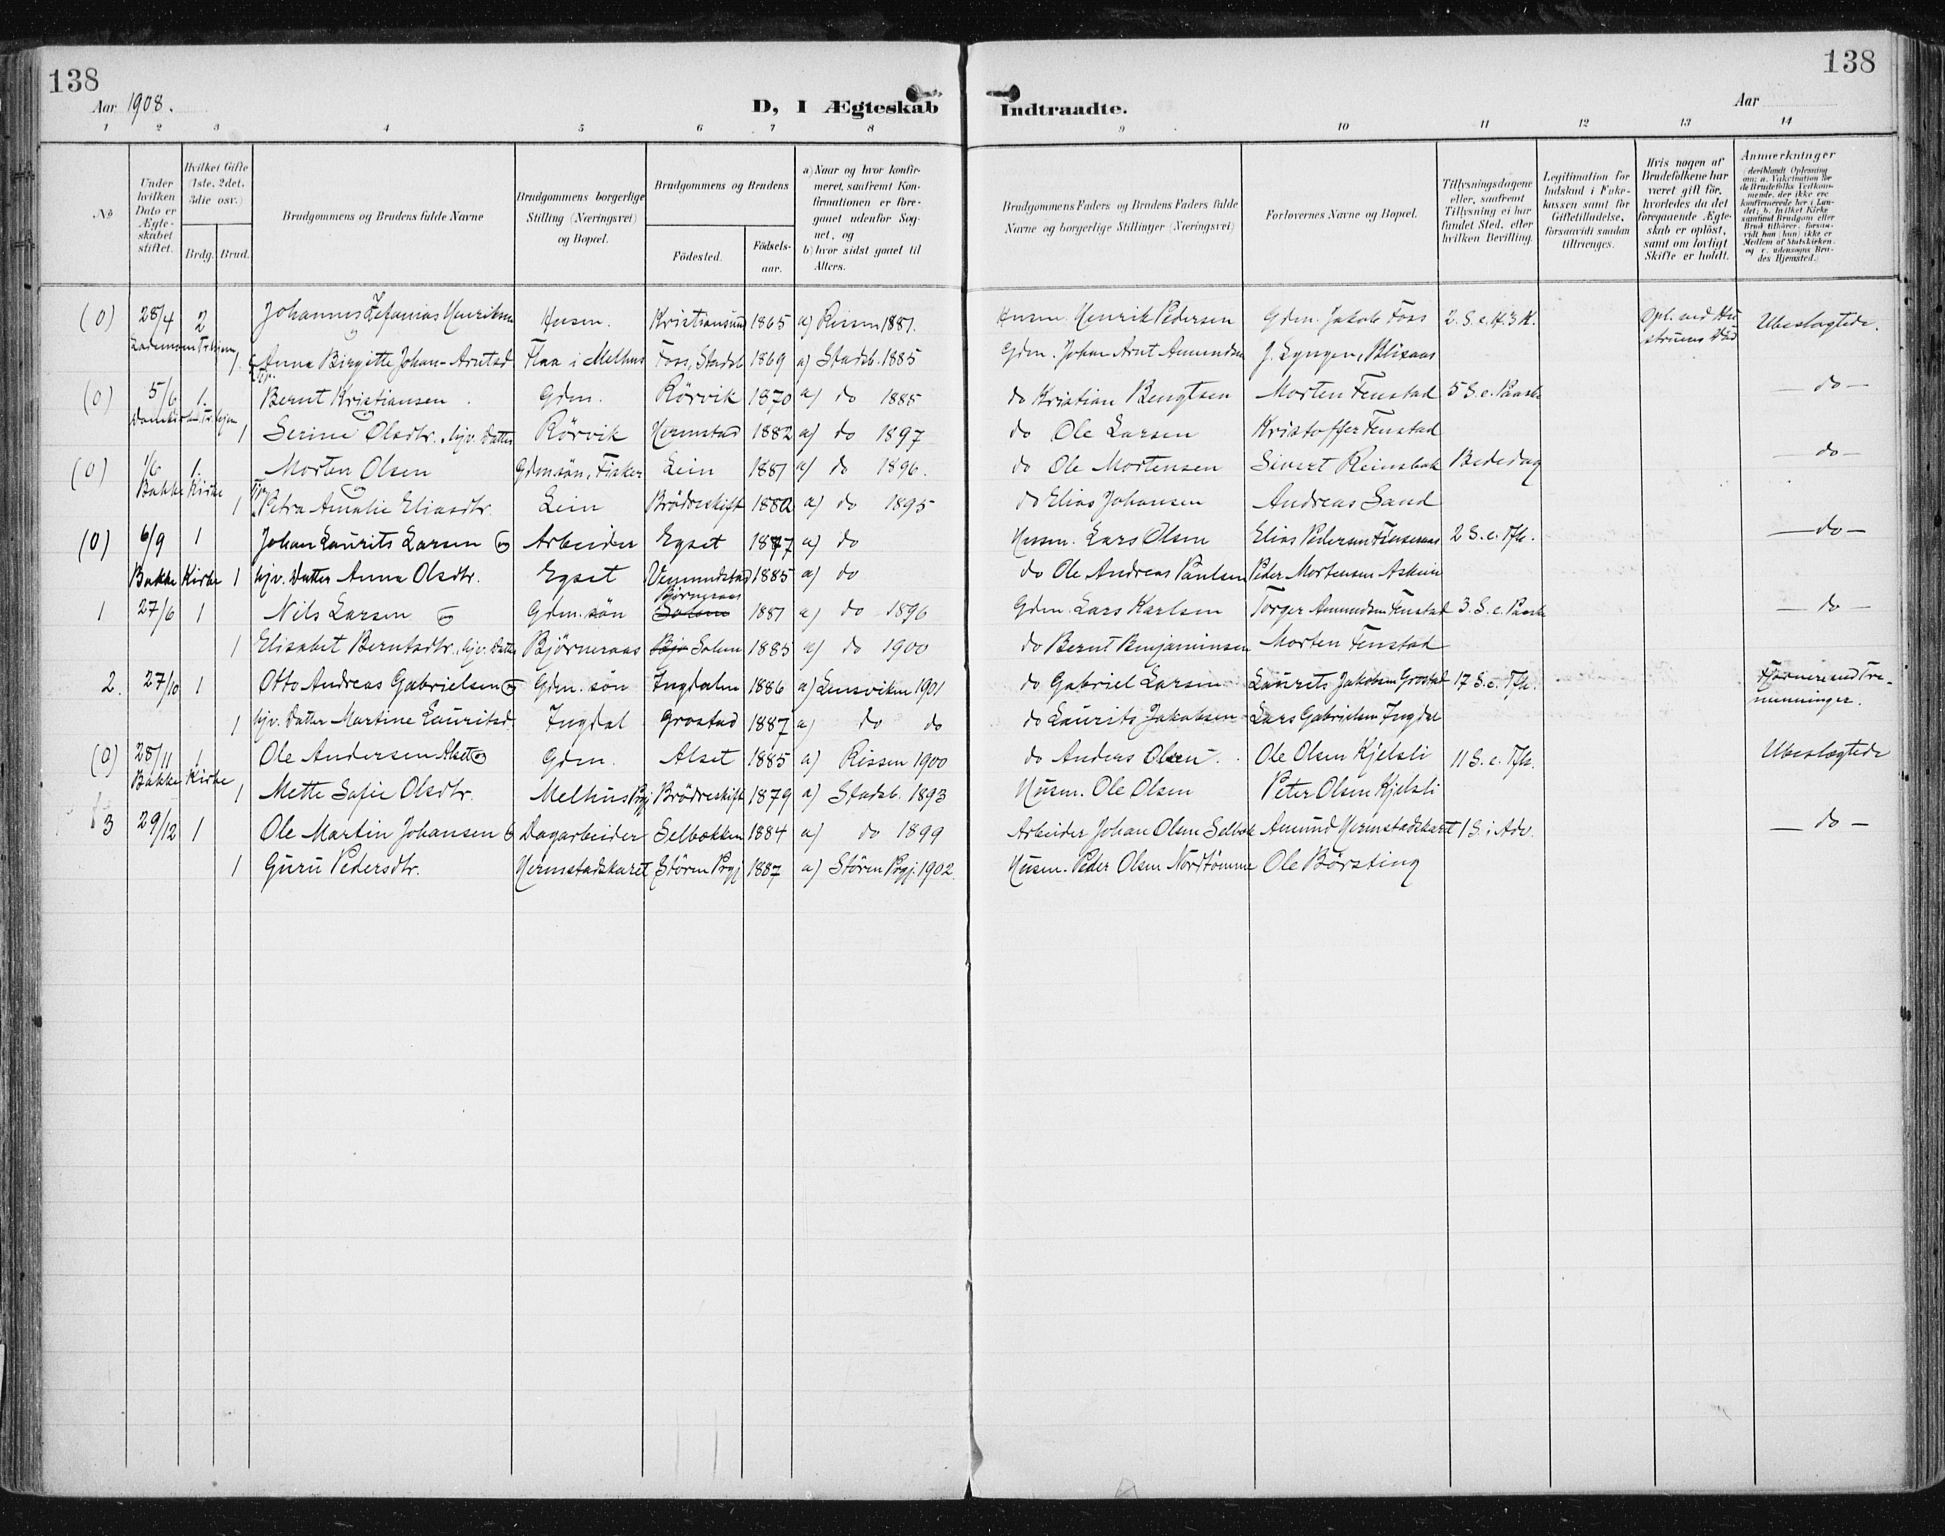 138
138
Aar 1908.
D, I Ægteskab Indtraadte.
Aar
1 2 3 4 5 6 7 8 9 10 11 12 13 14
No
Under hvilken Dato er Ægteskabet stiftet.
Hvilket Gifte (1ste, 2det, 3die osv.)
Brdg. Brud.
Brudgommens og Brudens fulde Navne
Brudgommens borgerlige Stilling (Næringsvei) og Bopæl.
Brudgommens og Brudens
Fødested.
Fødselsaar.
a) Naar og hvor konfirmeret, saafremt Konfirmationen er foregaaet udenfor Sognet, og
b) hvor sidst gaaet til Alters.
Brudgommens Faders og Brudens Faders fulde Navne og borgerlige Stillinger (Næringsvei)
Forlovernes Navne og Bopæl.
Tillysningsdagene eller, saafremt Tillysning ei har fundet Sted, efter hvilken Bevilling.
Legitimation for Indskud i Enkekassen samt for Giftetilladelse, forsaavidt saadan tiltrænges.
Hvis nogen af Brudefolkene har været gift før, hvorledes da det foregaaende Ægteskab er opløst, samt om lovligt Skifte er holdt.
Anmerkninger (deriblandt Oplysning om: a. Vakcination for de Brudefolks Vedkommende, der ikke ere konfirmerede her i Landet; b. hvilket Kirkesamfund Brudgom eller Brud tilhører, forsaavidt han (hun) ikke er Medlem af Statskirken, og c. udensogns Brudes Hjemsted.)
(0) 28/4 2 Johannes Zefanias Henriksen Husm. Kristiansund 1865 a) Rissen 1881. Husm. Henrik Pedersen Gdm. Jakob Foss 2. S. e. H. 3 K. Ubeslægtede.
1. Anna Birgitte Johan-Arntsd. Flaa i Melhus Foss, Stadsb. 1869 a) Stadsb. 1885 Gdm. Johan Arnt Amundsen J. Lyngen,
(0) 5/6 1. Bernt Kristiansen Gdm. Rörvik 1870 a) do 1885 do Kristian Bengtsen Morten Fenstad 5 S. e. Paaske — do —
1 Serine Olsdtr. hjv. Datter Rörvik Hermstad 1882 a) do 1897 do Ole Larsen Kristoffer Fenstad
(0) 1/6 1. Morten Olsen Gdmsön, Fisker Lein 1881 a) do 1896. do Ole Mortensen Sivert Reinsbak Bededag — do —
Bakke Kirke 1 Petra Amalie Eliasdtr. Lein Brödreskift 1882 a) do 1895 do Elias Johansen Andreas Sand
(0) 6/9 1 Johan Laurits Larsen Arbeider Egset 1877 a) do Husm. Lars Olsen Elias Pedersen 2 S. e. Tfh. — do —
Bakke Kirke 1 hjv. Datter Anna Olsdtr. Egset Vemundstad 1885 a) do do Ole Andreas Paulsen Peder Mortensen Askim
1 27/6 1 Nils Larsen Gdm. søn Solem Björneraas 1881 a) do 1896 Gdm. Lars Karlsen Torger Amundsen Fenstad 3. S. e. Paaske — do —
1 Elisabet Berntsdtr. hjv. Datter Bjørneraas Bjø Solem 1885 a) do 1900 do Bernt Benjaminsen Morten Fenstad
2. 27/10 1 Otto Andreas Gabrielsen Gdm. søn Ingdalen 1886 a) Lensviken 1901 do Gabriel Larsen Laurits Jakobsen Grostad 17 S. e. Tfh. Fjernere end Tremenninger.
1 hjv. Datter Martine Lauritsd. Ingdal Grostad 1887 a) do do do Laurits Jakobsen Lars Gabrielsen Ingdal
(0) 28/11 1 Ole Andersen Alset Gdm. Alset 1885 a) Rissen 1900 do Anders Olsen Ole Olsen Kjelsli 11 S. e. Tfh. Ubeslægtede
Bakke Kirke 1 Mette Sofie Olsdtr. Melhus Pgj Brödreskift 1879 a) Stadsb. 1893 Husm. Ole Olsen Peter Olsen Kjelsli
3 29/12 1 Ole Martin Johansen Dagarbeider Selbækken 1884 a) do 1899 Arbeider Johan Olsen Selbæk Amund Hermstadskaret 1 S. i Adv. — do —
1 Guru Pedersdtr. Hermstadskaret Stören Prgj 1887 a) Stören Prgj. 1902. Husm. Peder Olsen Nordtömme Ole Børsting